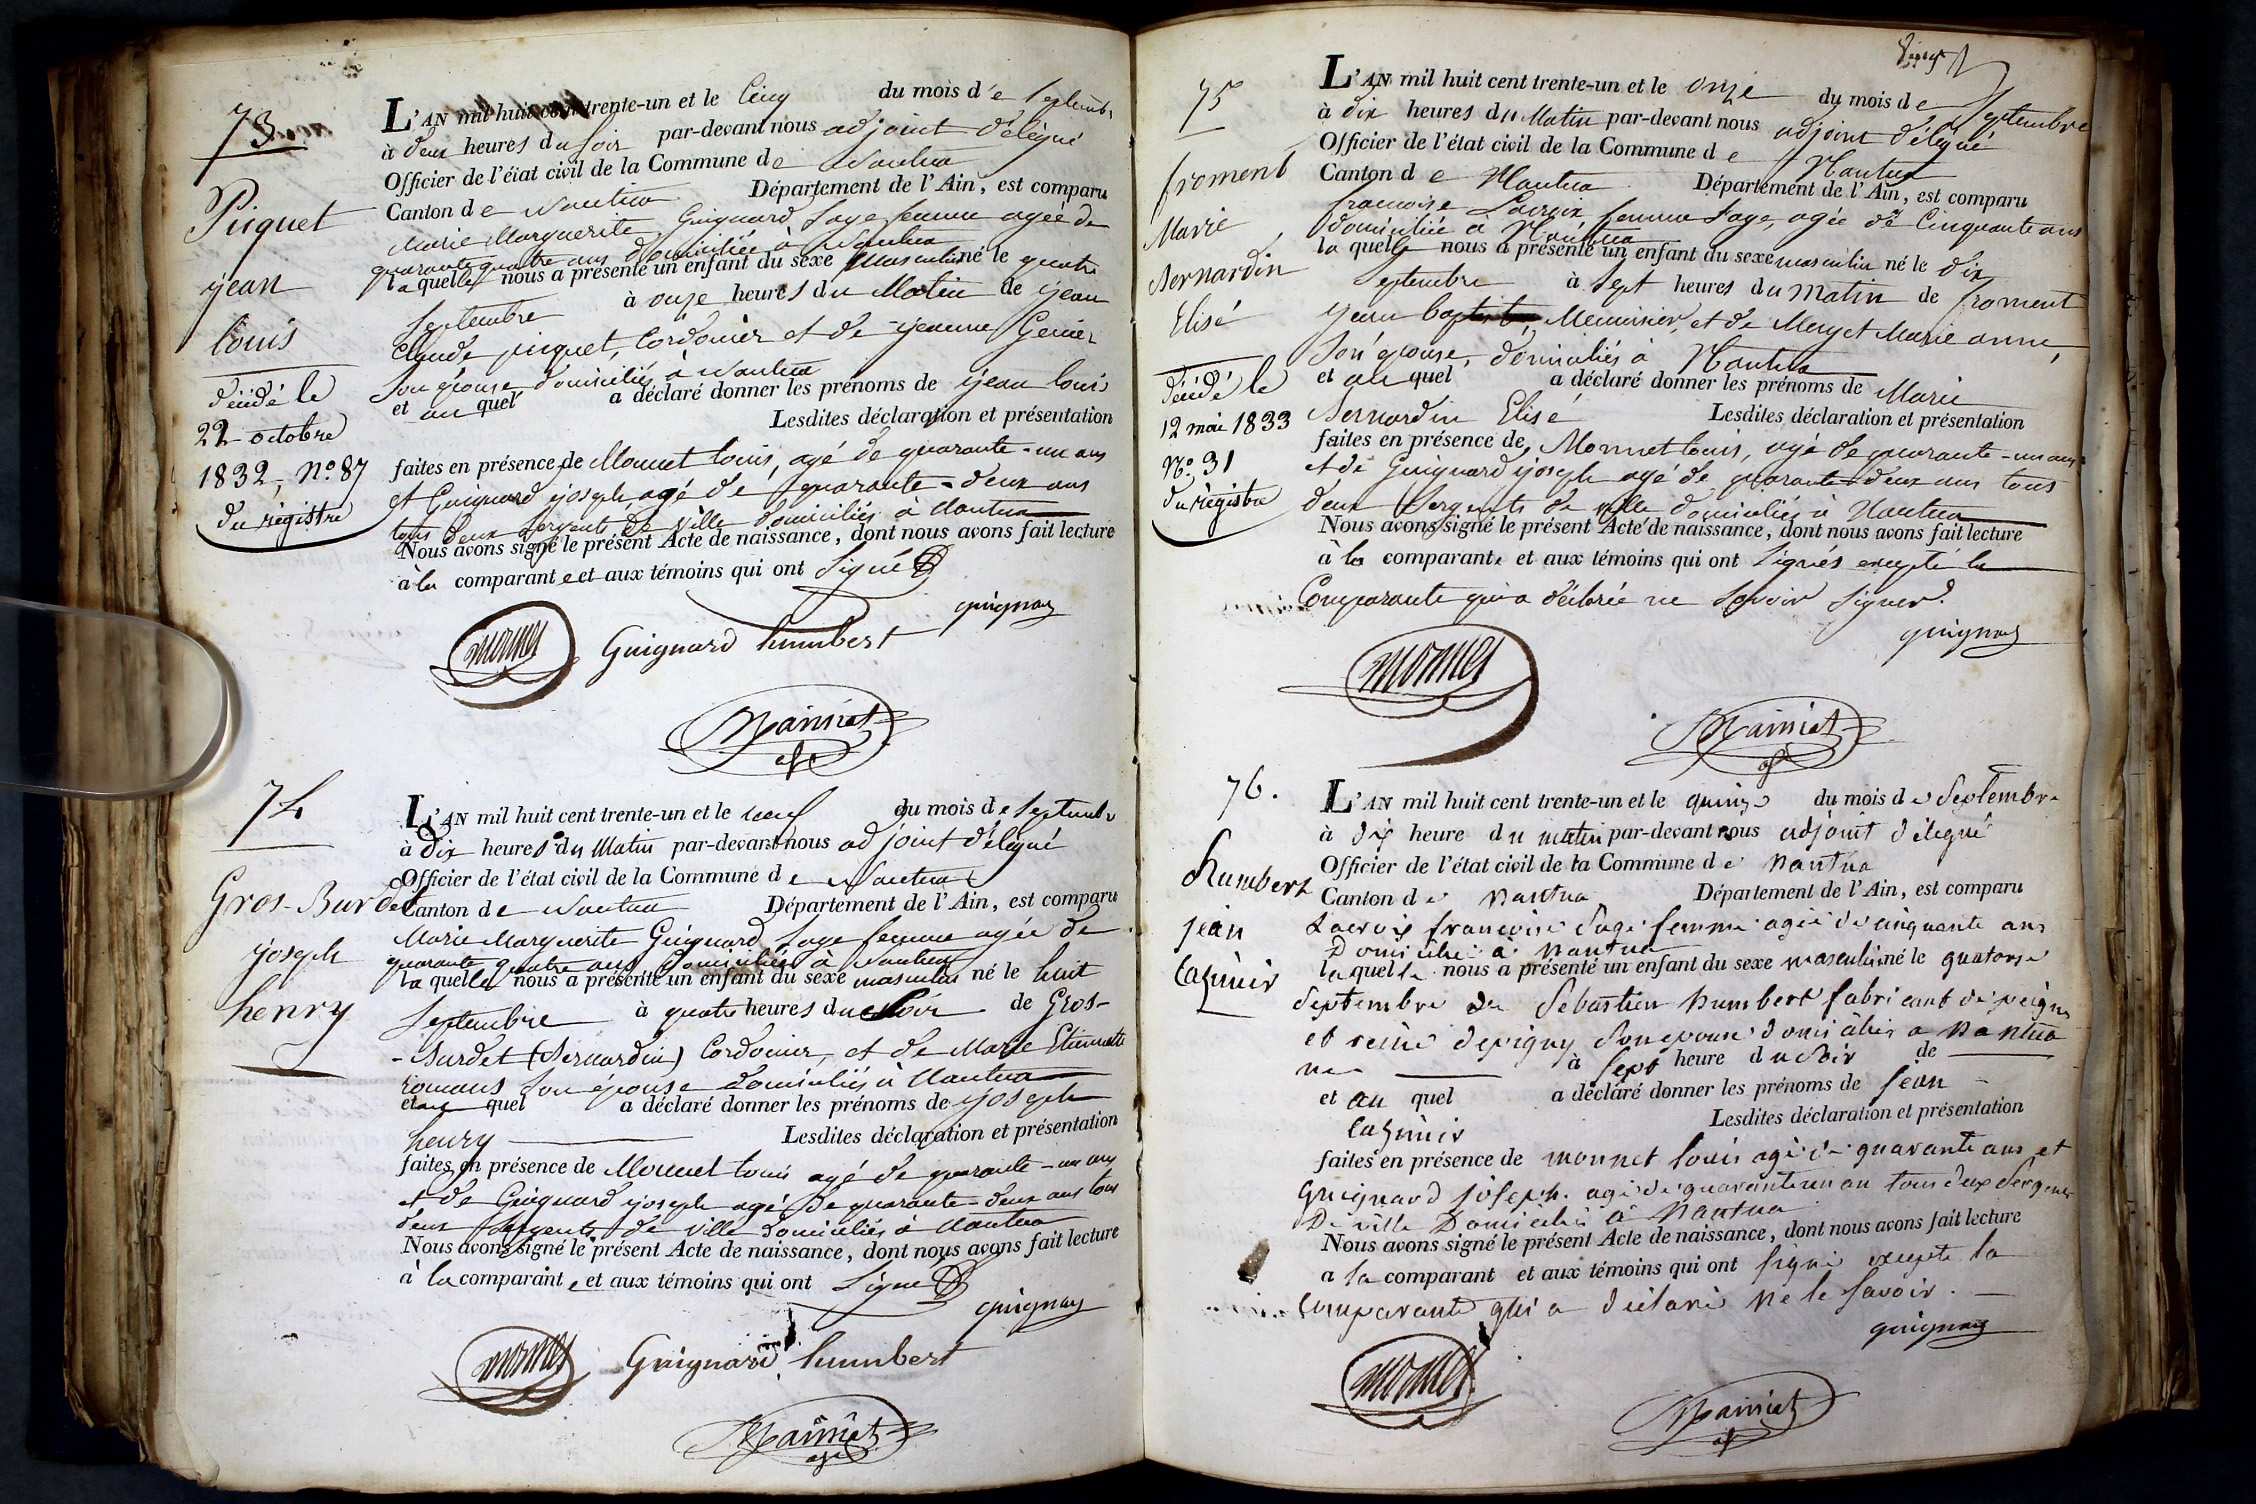 73.
Piquet
jean
louis
décédé le
22 octobre
1832, Nº 87
du régistre
L'AN mil huit cent trente-un et le Cinq du mois de Septembre
à deux heures du Soir par-devant nous adjoint délégué
Officier de l'état civil de la Commune de Nantua
Canton de Nantua Département de l'Ain, est comparu
Marie Marguerite Guignard Sage femme agée de
quarante quatre ans domiciliée à Nantua
la quelle nous a présenté un enfant du sexe Masculin né le quatre
Septembre à onze heures du Matin de jean
Claude piquet, Cordonier et de jeanne Genier
Son épouse domiciliés à Nantua
et au quel a déclaré donner les prénoms de jean louis
Lesdites déclaration et présentation
faites en présence de Monnet louis, agé de quarante-un ans
et Guignard joseph agé de quarante-deux ans
tous deux Sergents de Ville domiciliés à Nantua
Nous avons signé le présent Acte de naissance, dont nous avons fait lecture
à la comparante et aux témoins qui ont Signé
monnet Guignard humbert guignard
74
Gros-Burdet
joseph
henry
L'AN mil huit cent trente-un et le neuf du mois de Septembre
à dix heures du Matin par-devant nous adjoint délégué
Officier de l'état civil de la Commune de Nantua
Canton de Nantua Département de l'Ain, est comparu
Marie Marguerite Guignard Sage femme agée de
quarante quatre ans domiciliée à Nantua
la quelle nous a présenté un enfant du sexe masculin né le huit
Septembre à quatre heures du Soir de Gros-
-Burdet (Bernardin) Cordonier, et de Marie Etiennette
romans Son épouse domiciliés à Nantua
et au quel a déclaré donner les prénoms de joseph
henry Lesdites déclaration et présentation
faites en présence de Monnet louis agé de quarante-un ans
et de Guignard joseph agé de quarante-deux ans tous
deux Sergents de ville domiciliés à Nantua
Nous avons signé le présent Acte de naissance, dont nous avons fait lecture
à la comparante et aux témoins qui ont Signé
monnet Guignard humbert guignard
75
froment
Marie
Bernardin
Elisé
décédé le
12 mai 1833
Nº 31
du régistre
L'AN mil huit cent trente-un et le onze du mois de Septembre
à dix heures du Matin par-devant nous adjoint délégué
Officier de l'état civil de la Commune de Nantua
Canton de Nantua Département de l'Ain, est comparu
francoise Lacroix femme Sage, agée de Cinquante ans
domiciliée à Nantua
la quelle nous a présenté un enfant du sexe masculin né le dix
Septembre à Sept heures du matin de froment
jean baptiste, Menuisier, et de Meryet Marie anne,
Son épouse, domiciliés à Nantua
et au quel a déclaré donner les prénoms de Marie
Bernardin Elisé Lesdites déclaration et présentation
faites en présence de Monnet louis, agé de quarante-un ans
et de Guignard joseph agé de quarante-deux ans tous
deux Sergents de ville domiciliés à Nantua
Nous avons signé le présent Acte de naissance, dont nous avons fait lecture
à la comparante et aux témoins qui ont Signés excepté la
Comparante qui a déclaré ne Savoir Signer.
monnet guignard
76.
humbert
jean
Cazimir
L'AN mil huit cent trente-un et le quinze du mois de Septembre
à dix heure du matin par-devant nous adjoint délégué
Officier de l'état civil de la Commune de nantua
Canton de nantua Département de l'Ain, est comparu
Lacroix francoise Sage femme agée de cinquante ans
Domiciliée à nantua
la quelle nous a présenté un enfant du sexe masculin né le quatorze
Septembre de Sébastien humbert fabricant de peignes
et reine depigny Son epouse domiciliés a nantua
né à Sept heure du Soir de
et au quel a déclaré donner les prénoms de jean
Cazimir Lesdites déclaration et présentation
faites en présence de monnet louis agé de quarante ans et
guignard joseph. agé de quarante un an tous deux Sergents
De ville Domiciliés à nantua
Nous avons signé le présent Acte de naissance, dont nous avons fait lecture
a la comparant et aux témoins qui ont signé excepté la
comparante qui a déclaré ne le savoir.
monnet guignard